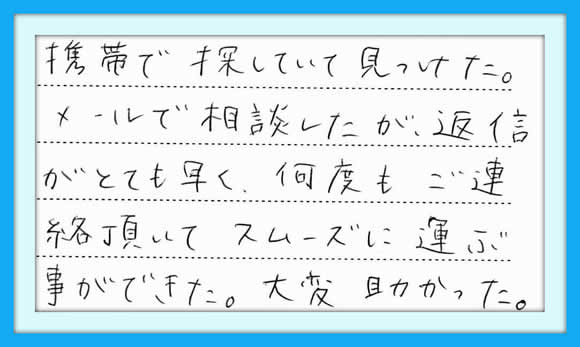 携帯で探していて見つけた。
メールで相談したが、返信
がとても早く、何度もご連
絡頂いてスムーズに運ぶ
事ができた。大変助かった。